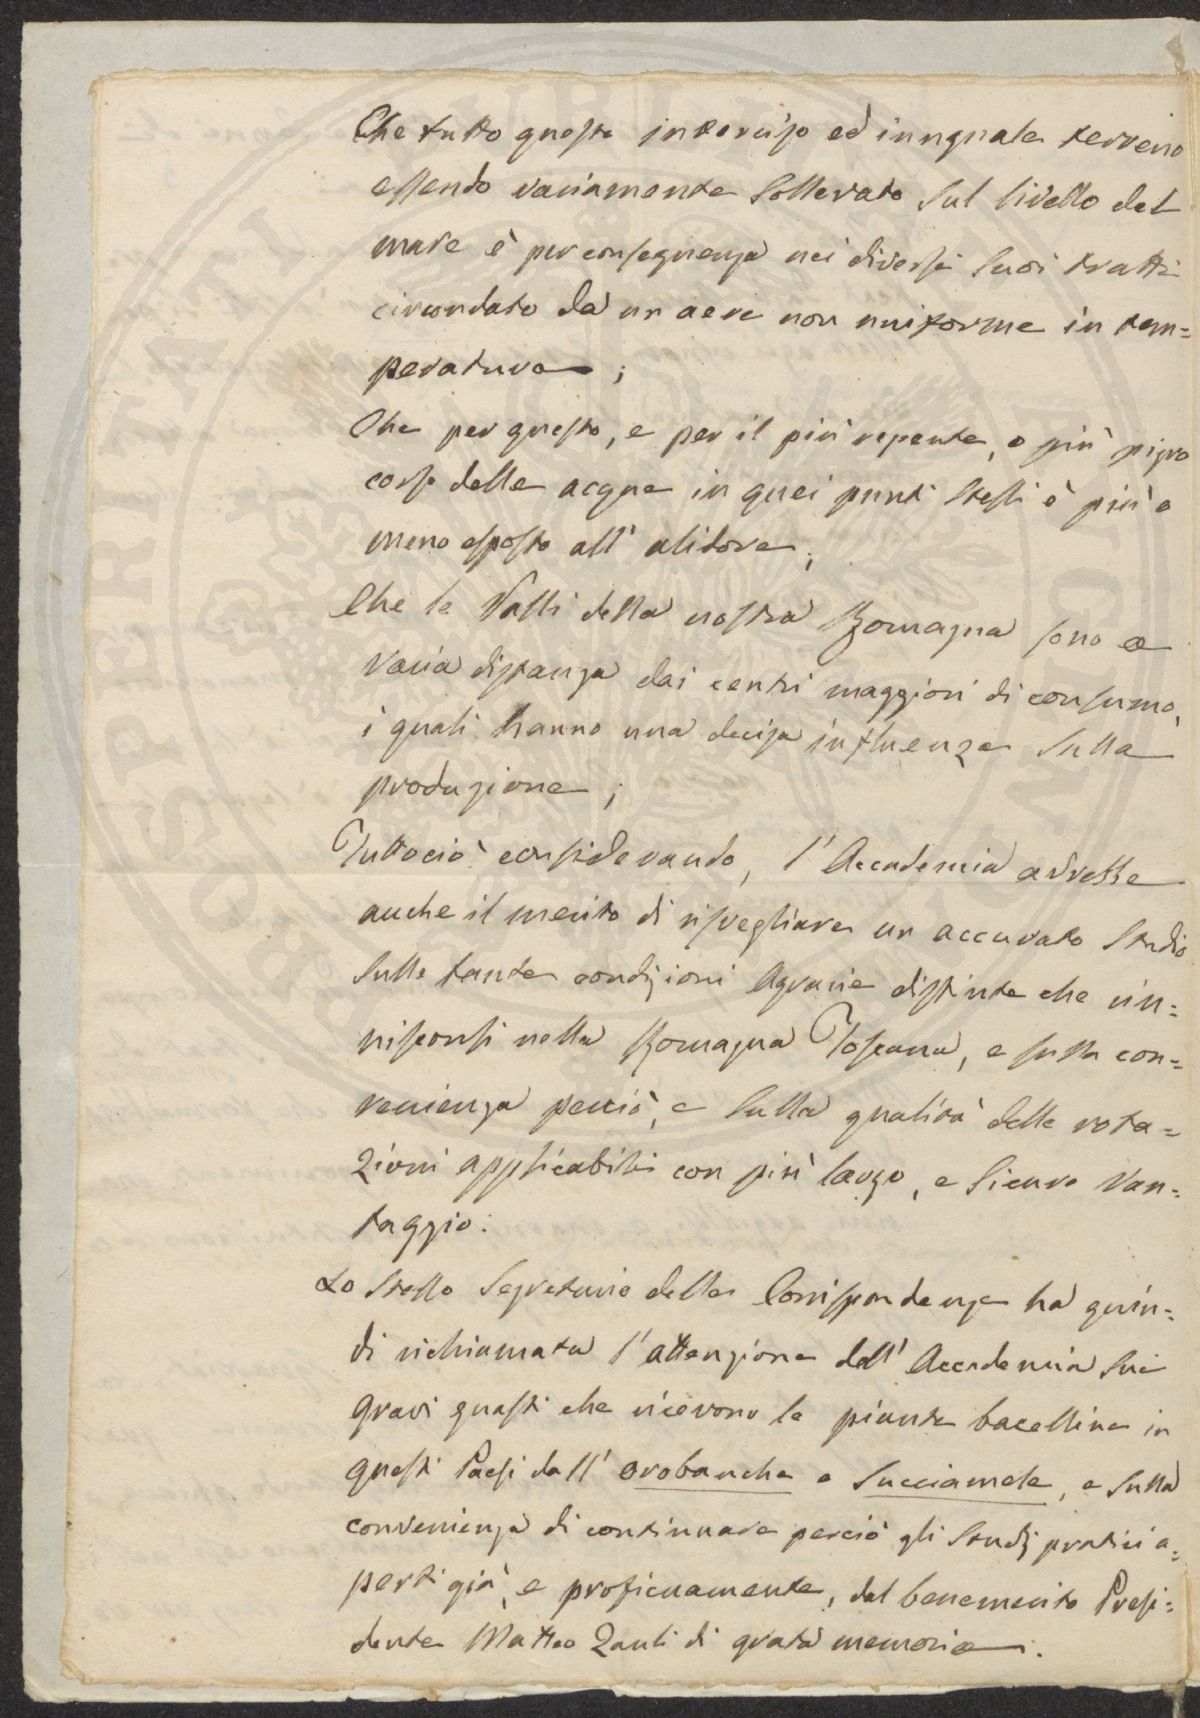 Che tutto questo interciso ed inuguale terreno
essendo variamente sollevato sul livello del
mare è per conseguenza nei diversi suoi tratti
circondato da un aere non uniforme in tem=
peratura;
Che per questo, e per il più repente, o più pigro
corso delle acque in quei punti stessi è più o
meno esposto all' alidore;
Che le Valli della nostra Romagna sono a
varia distanza dai centri maggiori di consumo,
i quali hanno una decisa influenza sulla
produzione;
Tuttociò considerando, l'Accademia avrebbe
anche il merito di risvegliare un accurato studio
sulle tante condizioni Agrarie distinte che riu=
nisconsi nella Romagna Toscana, e sulla con=
venienza perciò, e sulla qualità delle rota=
zioni applicabili con più largo, e sicuro van=
taggio.
Lo stesso Segretario della Corrispondenza ha quin=
di richiamata l'attenzione dell' Accademia sui
gravi guasti che ricevono le piante bacelline in
questi Paesi dall' orobanche o succiamele, e sulla
convenienza di continuare perciò gli studj pratici a=
perti già, e proficuamente, dal benemerito Presi=
dente Matteo Zauli di grata memoria.